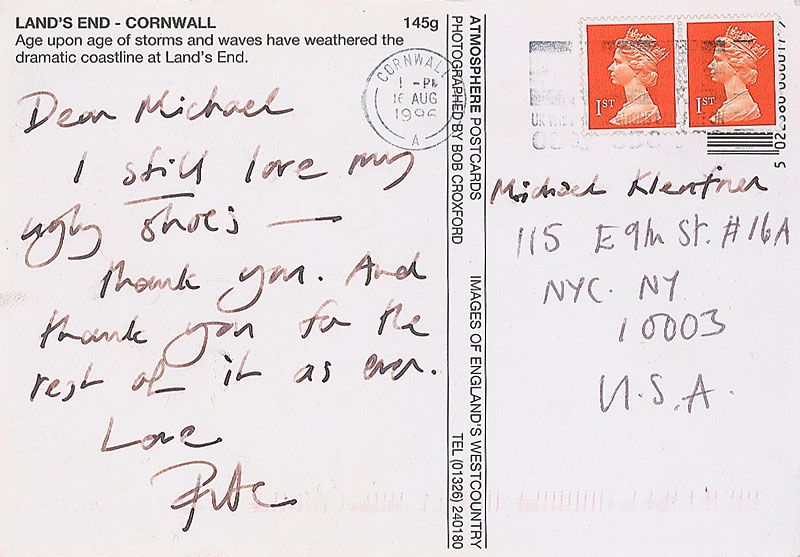 LAND'S END - CORNWALL
145g
Age upon age of storms and waves have weathered the
dramatic coastline at Land's End.
Dear Michael
I still love my
ugly shoes —
thank you. And
thank you for the
rest of it as ever.
Love
ATMOSPHERE POSTCARDS
PHOTOGRAPHED BY BOB CROXFORD
IMAGES OF ENGLAND'S WESTCOUNTRY
TEL (01326) 240180
CORNWALL
1 - PM
16 AUG
1996
A
1ST
1ST
Michael
115 E 9th St. #16A
NYC. NY
10003
U.S.A.